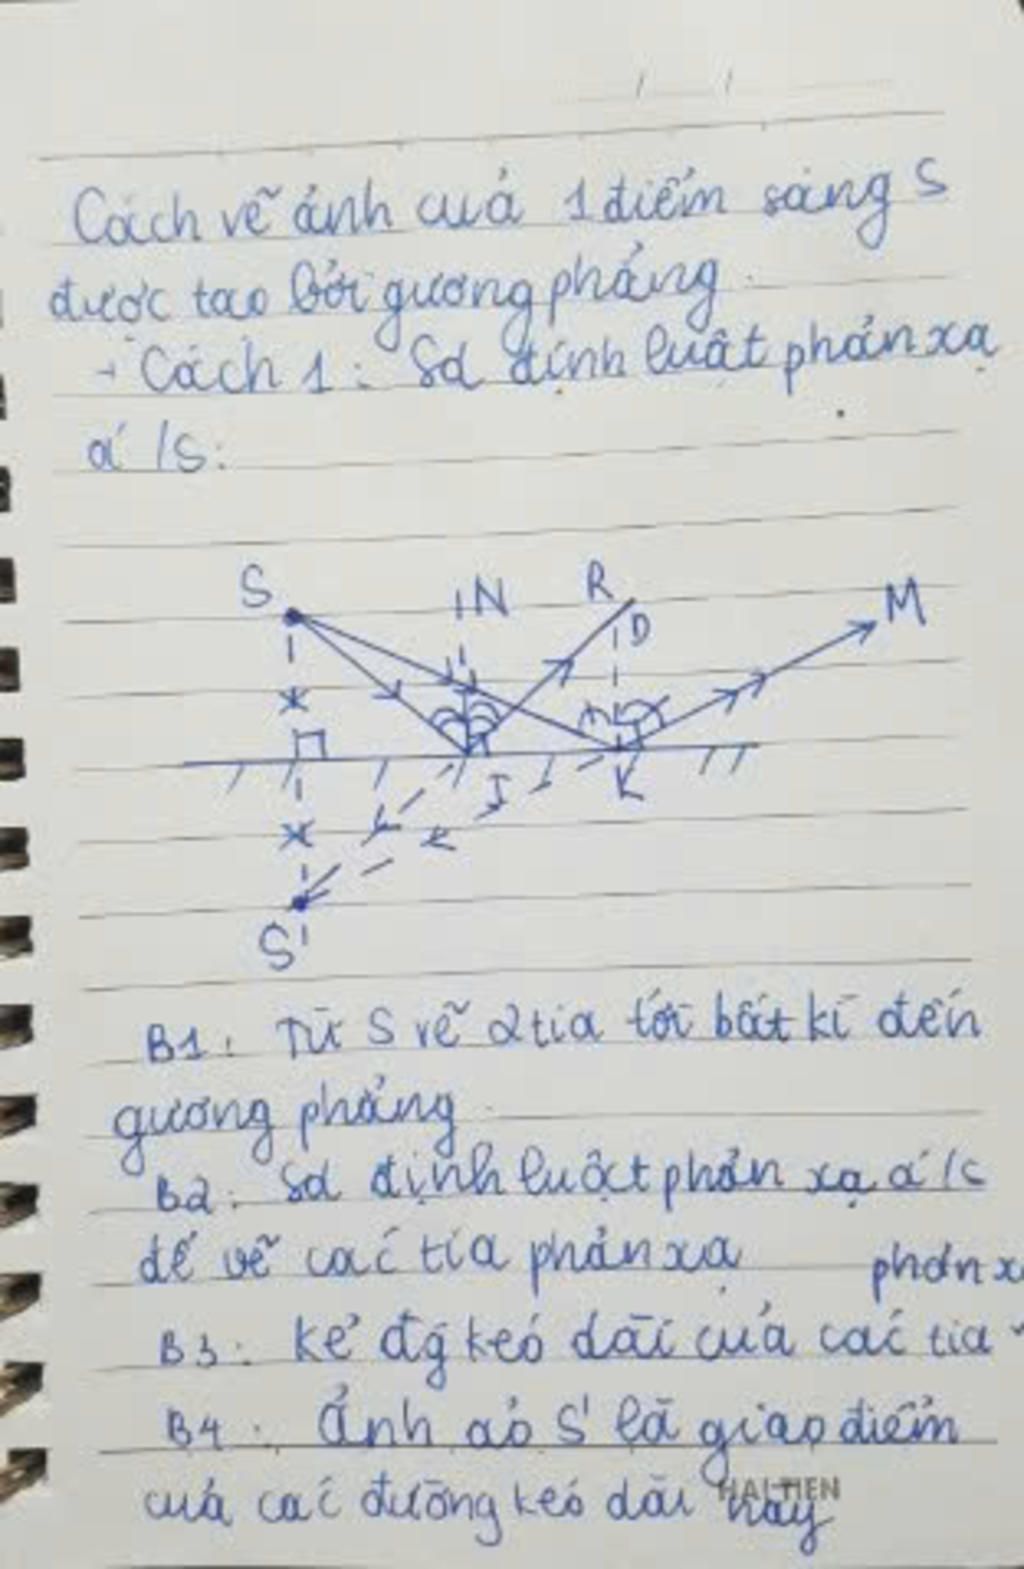 Cách vẽ ảnh cuả 1 điểm sáng S
được tạo bởi gương phẳng
- Cách 1: Sd định luật phản xạ
á /s:
S N R D M
I K
S'
B1: Từ S vẽ 2 tia tới bất kì đến
gương phẳng
B2: Sd định luật phản xạ á /s
để vẽ các tia phản xạ phản x
B3: kẻ đg kéo dài của các tia
B4: Ảnh ảo S' là giao điểm
cuả các đường kéo dài này
HẢI TIẾN